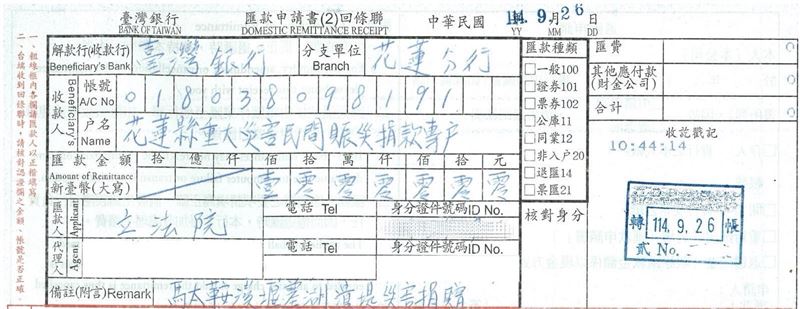 臺灣銀行 匯款申請書(2)回條聯 中華民國 114.9月26
BANK OF TAIWAN DOMESTIC REMITTANCE RECEIPT YY MM DD
一、粗線框內各欄請匯款人以正楷填寫。
二、台端收到回條聯時，請核計認證欄之金額、帳號是否正確。
解款行(收款行) 臺灣銀行 分支單位 花蓮分行
Beneficiary's Bank Branch
收款人 Beneficiary's
帳號 018038098191
A/C No
户名 花蓮縣重大災害民間賑災捐款專戶
Name
匯款金額 拾 億 仟 佰 拾 萬 仟 佰 拾 元
Amount of Remittance
新臺幣(大寫) 壹 零 零 零 零 零 零
匯款人 Applicant 立法院 電話 Tel 身分證件號碼ID No.
代理人 Agent 電話 Tel 身分證件號碼ID No.
備註(附言)Remark 馬太鞍溪堰塞湖潰堤災害捐贈
匯款種類
□一般100
□證券101
□票券102
□公庫11
□同業12
□非入戶20
□退匯14
□票匯21
核對身分
匯費 0
其他應付款
(財金公司) 0
合計 0
收訖戳記
10:44:14
轉 114.9.26 帳
貳 No.